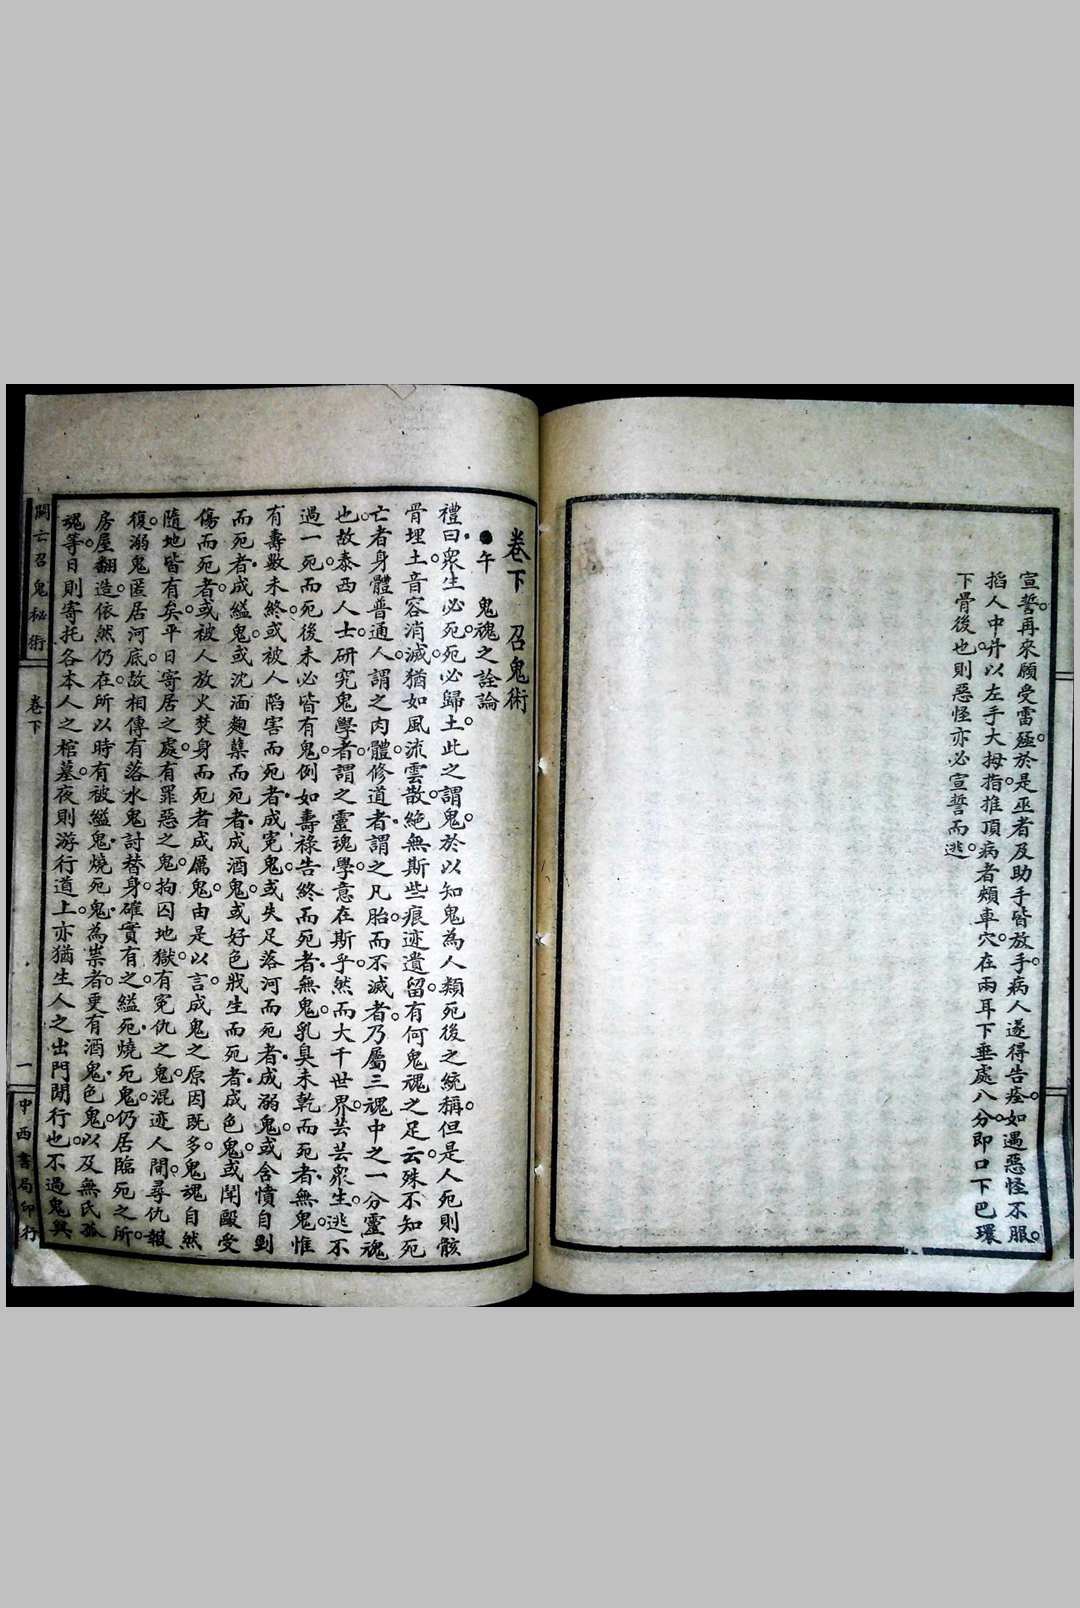 宣誓。再來願受雷殛。於是巫者及助手皆放手。病人遂得告痊。如遇惡怪不服。
掐人中。并以左手大拇指。推頂病者頰車穴。在兩耳下垂處八分。即口下巴環
下骨後也。則惡怪亦必宣誓而逃。
卷下 召鬼術
●午 鬼魂之詮論
禮曰。衆生必死。死必歸土。此之謂鬼。於以知鬼為人類死後之統稱。但是人死則骸
骨埋土。音容消滅。猶如風流雲散。絕無斯些痕迹遺留。有何鬼魂之足云。殊不知死
亡者身體。普通人。謂之肉體。修道者。謂之凡胎。而不滅者。乃屬三魂中之一分靈魂
也。故泰西人士。研究鬼學者。謂之靈魂學。意在斯乎。然而大千世界。芸芸衆生。逃不
過一死。而死後未必皆有鬼。例如壽祿告終而死者。無鬼。乳臭未乾而死者。無鬼。惟
有壽數未終。或被人陷害而死者。成冤鬼。或失足落河而死者。成溺鬼。或含憤自剄
而死者。成縊鬼。或沈湎麴蘖而死者。成酒鬼。或好色戕生而死者。成色鬼。或鬧毆受
傷而死者。或被人放火焚身而死者成厲鬼。由是以言。成鬼之原因既多。鬼魂自然
隨地皆有矣。平日寄居之處。有罪惡之鬼。拘囚地獄。有冤仇之鬼。混迹人間。尋仇報
復。溺鬼匿居河底。故相傳有落水鬼討替身。確實有之。縊死。燒死鬼。仍居臨死之所。
房屋翻造。依然仍在。所以時有被縊鬼。燒死鬼。為祟者。更有酒鬼。色鬼。以及無氏孤
魂等。日則寄托各本人之棺墓。夜則游行道上。亦猶生人之出門閒行也。不過鬼與
關亡召鬼秘術
卷下
一
中西書局印行